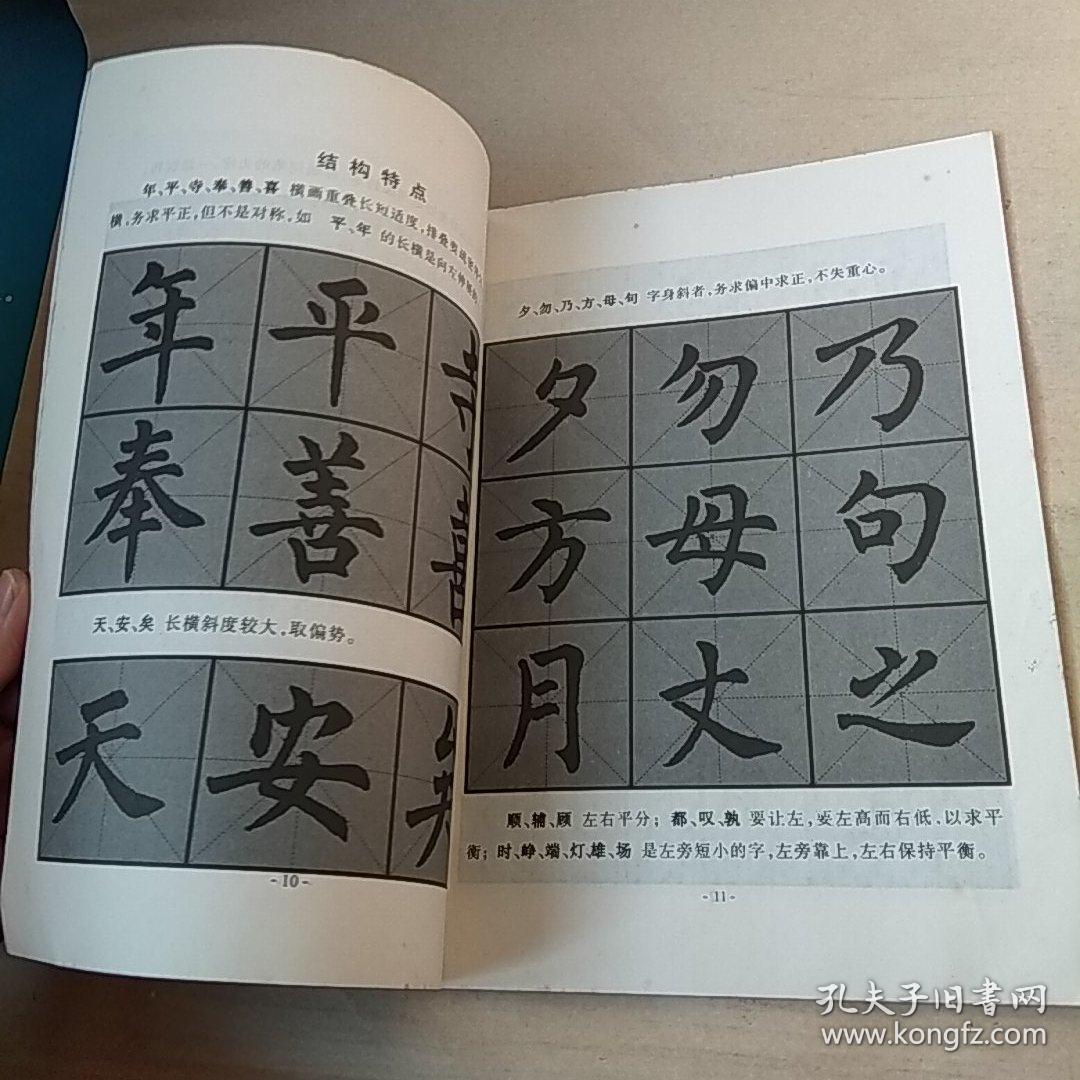 结构特点
年、平、寺、奉、善、喜 横画重叠长短适度,排叠
横,务求平正,但不是对称。如 平、年 的长横是向左伸
年 平
奉 善 喜
天、安、矣 长横斜度较大,取偏势。
天 安
- 10 -
夕、勿、乃、方、母、句 字身斜者,务求偏中求正,不失重心。
夕 勿 乃
方 母 句
月 丈 之
顺、辅、顾 左右平分;都、叹、孰 要让左,要左高而右低,以求平
衡;时、峥、端、灯、雄、场 是左旁短小的字,左旁靠上,左右保持平衡。
- 11 -
孔夫子旧書网
www.kongfz.com